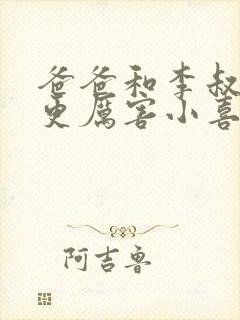 爸爸和李叔
更厲害小喜
阿吉鲁